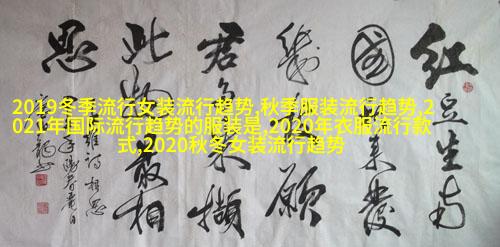 2019冬季流行女装流行趋势,秋季服装流行趋势,2
021年国际流行趋势的服装是,2020年衣服流行款
式,2020秋冬女装流行趋势
红豆生南
國春来發
幾枝願
君多采撷
此物最相
思